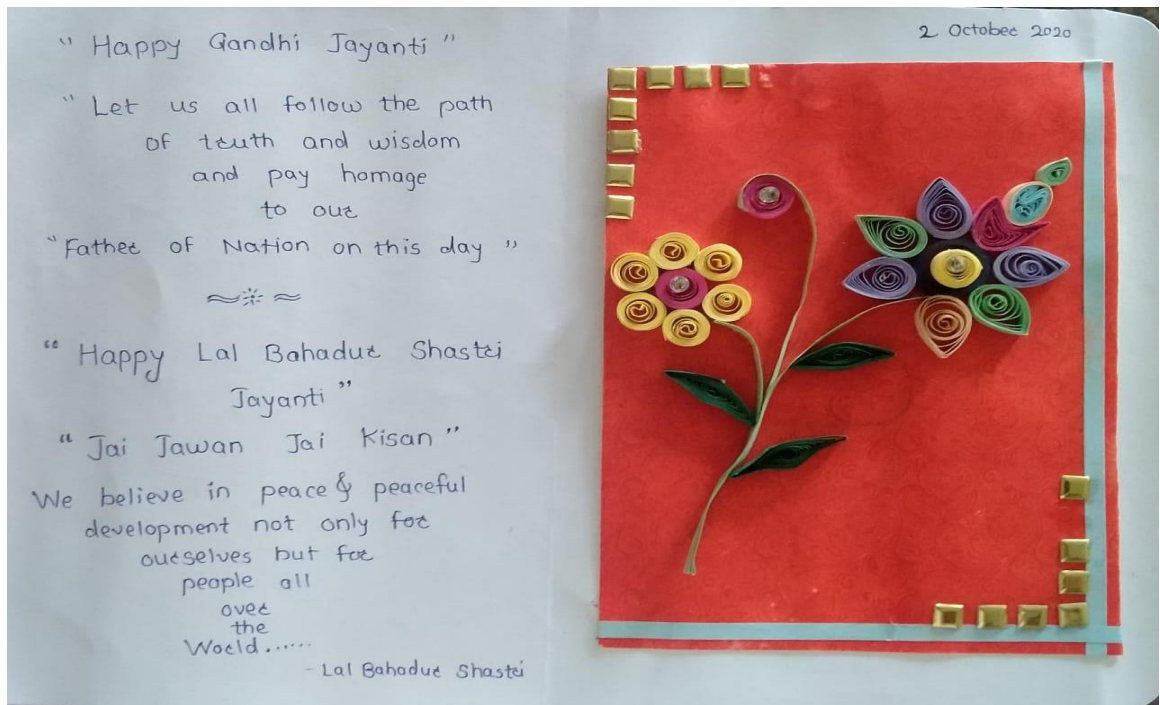 2 October 2020
" Happy Gandhi Jayanti "
" Let us all follow the path
of truth and wisdom
and pay homage
to our
" Father of Nation on this day "
" Happy Lal Bahadur Shastri
Jayanti "
" Jai Jawan Jai Kisan "
We believe in peace & peaceful
development not only for
ourselves but for
people all
over
the
World......
- Lal Bahadur Shastri